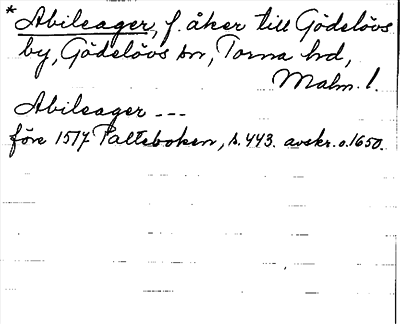 * Abileager, f. åker till Gödelövs
by, Gödelövs sn, Torna hd,
Malm. l.
Abileager ---
före 1517 Palteboken, s. 443. avskr. o. 1650.